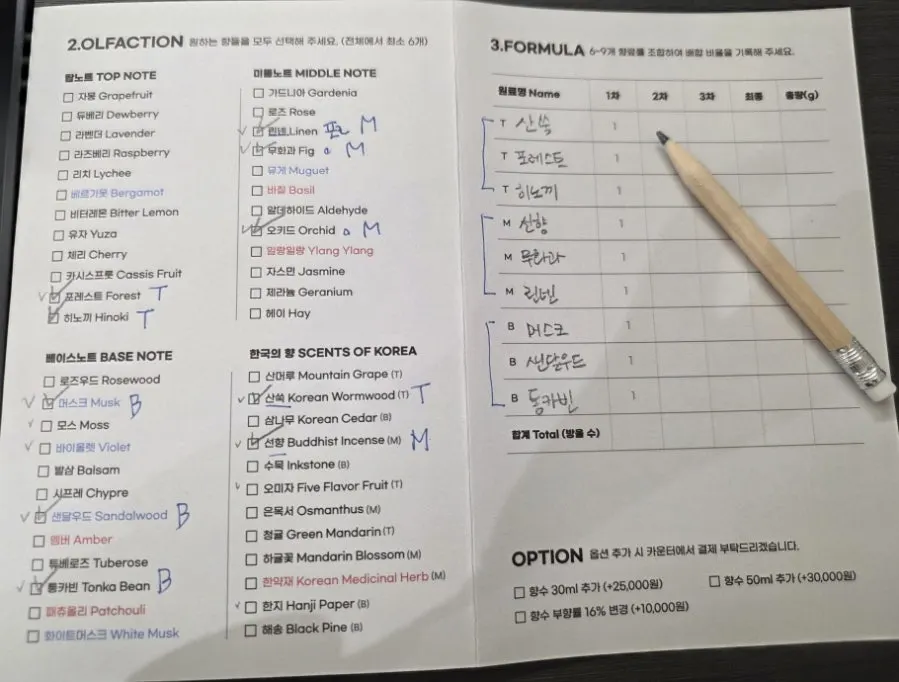 2.OLFACTION 원하는 향들을 모두 선택해 주세요. (전체에서 최소 6개)
탑노트 TOP NOTE
자몽 Grapefruit
듀베리 Dewberry
라벤더 Lavender
라즈베리 Raspberry
리치 Lychee
베르가못 Bergamot
비터레몬 Bitter Lemon
유자 Yuza
체리 Cherry
카시스프룻 Cassis Fruit
포레스트 Forest T
히노끼 Hinoki T
미들노트 MIDDLE NOTE
가드니아 Gardenia
로즈 Rose
린넨 Linen M
무화과 Fig M
뮤게 Muguet
바질 Basil
알데하이드 Aldehyde
오키드 Orchid M
일랑일랑 Ylang Ylang
자스민 Jasmine
제라늄 Geranium
헤이 Hay
베이스노트 BASE NOTE
로즈우드 Rosewood
머스크 Musk B
모스 Moss
바이올렛 Violet
발삼 Balsam
시프레 Chypre
샌달우드 Sandalwood B
엠버 Amber
튜베로즈 Tuberose
통카빈 Tonka Bean B
패츄올리 Patchouli
화이트머스크 White Musk
한국의 향 SCENTS OF KOREA
산머루 Mountain Grape (T)
산쑥 Korean Wormwood (T) T
삼나무 Korean Cedar (B)
선향 Buddhist Incense (M) M
수묵 Inkstone (B)
오미자 Five Flavor Fruit (T)
은목서 Osmanthus (M)
청귤 Green Mandarin (T)
하귤꽃 Mandarin Blossom (M)
한약재 Korean Medicinal Herb (M)
한지 Hanji Paper (B)
해송 Black Pine (B)
3.FORMULA 6-9개 향료를 조합하여 배합 비율을 기록해 주세요.
원료명 Name 1차 2차 3차 최종 총량(g)
T 산쑥 1
T 포레스트 1
T 히노끼 1
M 선향 1
M 무화과 1
M 린넨 1
B 머스크 1
B 샌달우드 1
B 통카빈 1
합계 Total (방울 수)
OPTION 옵션 추가 시 카운터에서 결제 부탁드리겠습니다.
향수 30ml 추가 (+25,000원) 향수 50ml 추가 (+30,000원)
향수 부향률 16% 변경 (+10,000원)